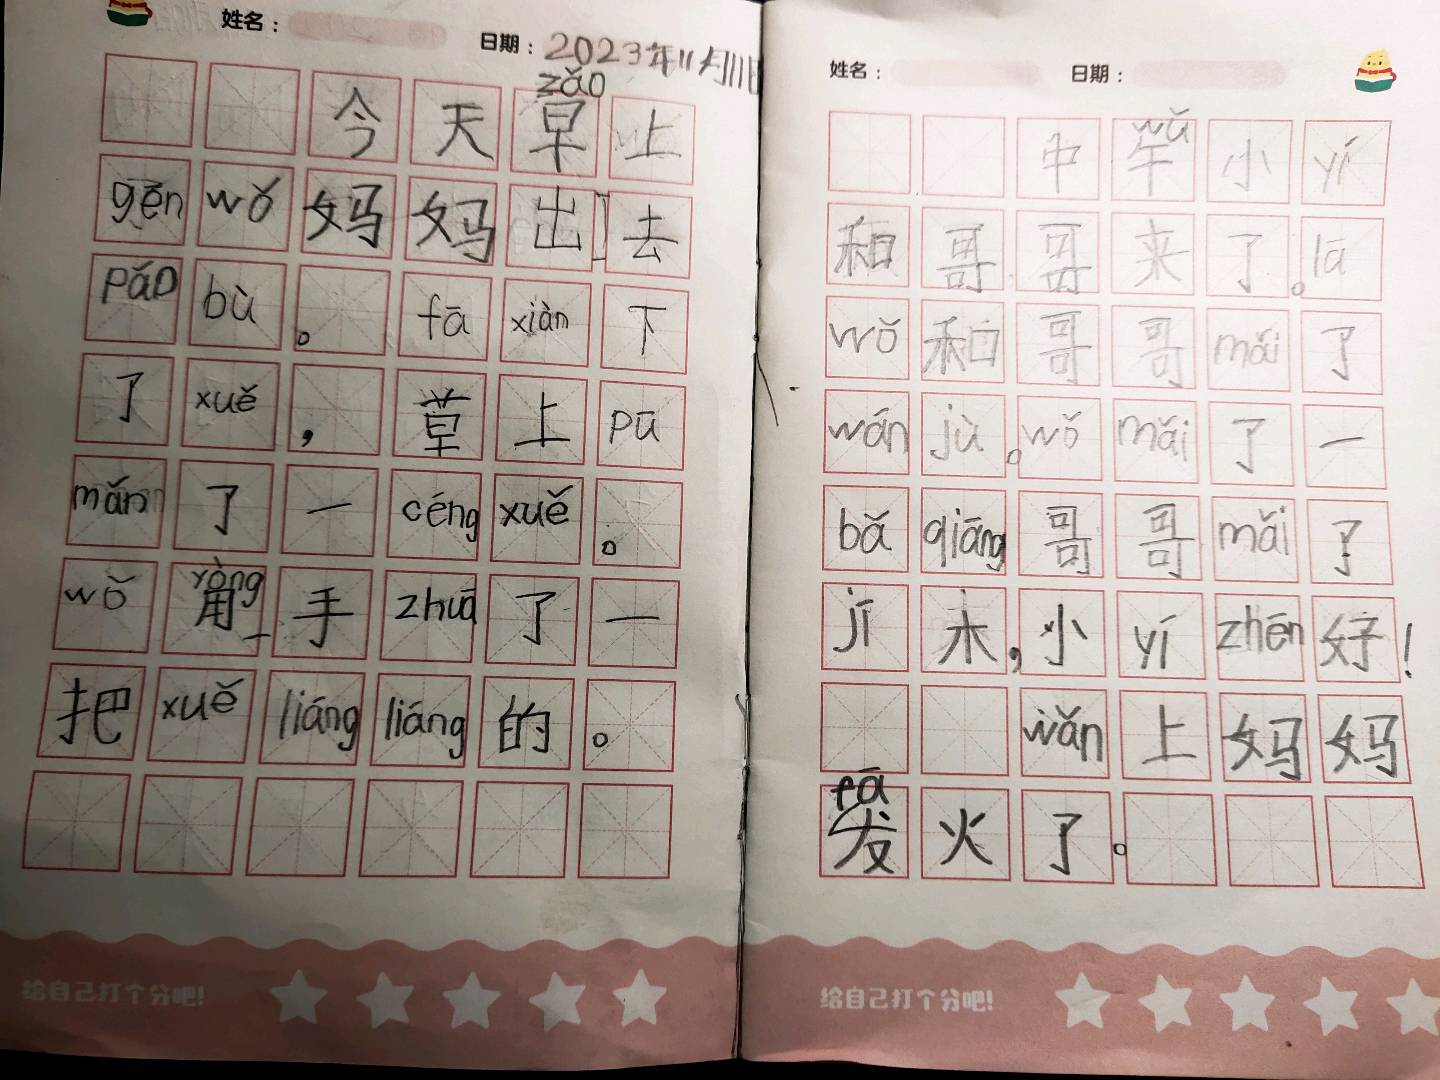 姓名：
日期：2023年11月11日
zǎo
今天早上
gēn wǒ 妈妈出去
pǎo bù 。 fā xiàn 下
了 xuě ， 草上 pū
mǎn 了一 céng xuě 。
yòng
wǒ 用手 zhuā 了一
把 xuě liáng liáng 的。
给自己打个分吧!
姓名：
日期：
wǔ
中午小 yí
和哥哥来了。lā
wǒ 和哥哥 mǎi 了
wán jù 。wǒ mǎi 了一
bǎ qiāng 哥哥 mǎi 了
jī 木，小 yí zhēn 好！
wǎn 上妈妈
fā
发火了。
给自己打个分吧!